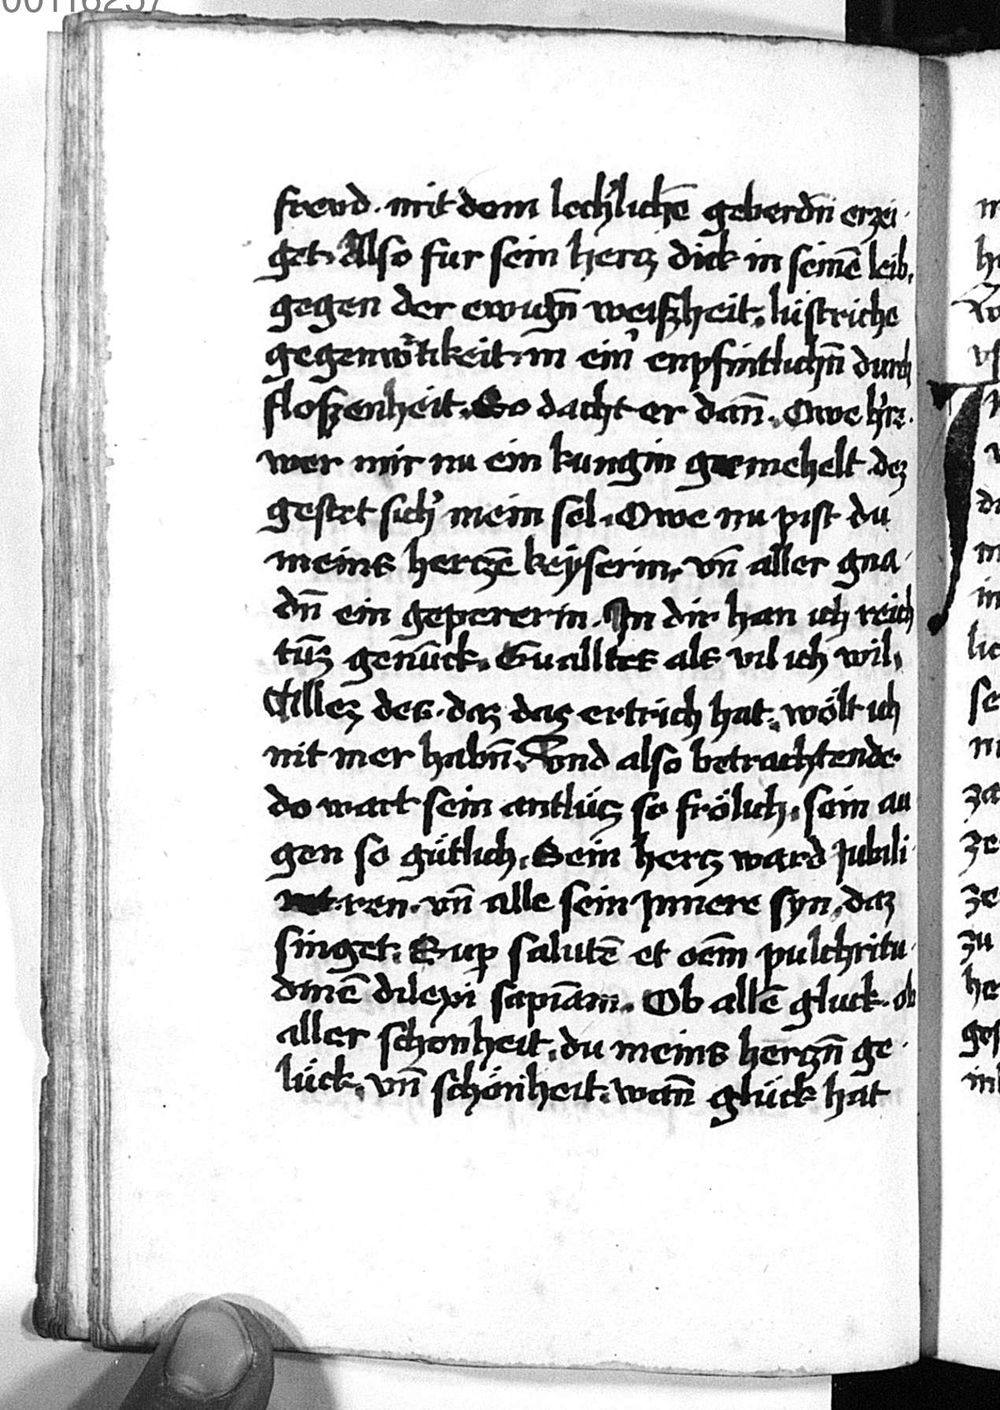 frewd. mit dem lech'lichē geberdn̄ erzei
get. Also fur sein hertz dick in seinē leib.
gegen der ewign̄ weiſzheit. lüstriche
gegenw'tikeit. in ein' enpfintlichn̄ durch
floſzenheit. So dacht er dan̄. Owe h'rz.
wer mir nu ein kungin gemehelt. dez
gestet sich' mein sel. Owe nu pist du
meins hertzē keyserin. vn̄ aller gna
dn̄ ein gepererin. In dir han ich reich
tūz genūck. Gualltes als vil ich wil.
Allez des. daz das ertrich hat. wölt ich
nit mer habn̄. Vnd also betrachtende
do wart sein antlütz so frölich. sein au
gen so gütlich. Sein hertz ward Jubili
ren. vn̄ alle sein Jnnere syn. daz
singet. Sup salutē et oēm pulchritu
dinē dilexi sapiāam. Ob allē gluck. ob
aller schonheit. du meins hertzn̄ ge
lück. vn̄ schönheit. wan̄ glück hat